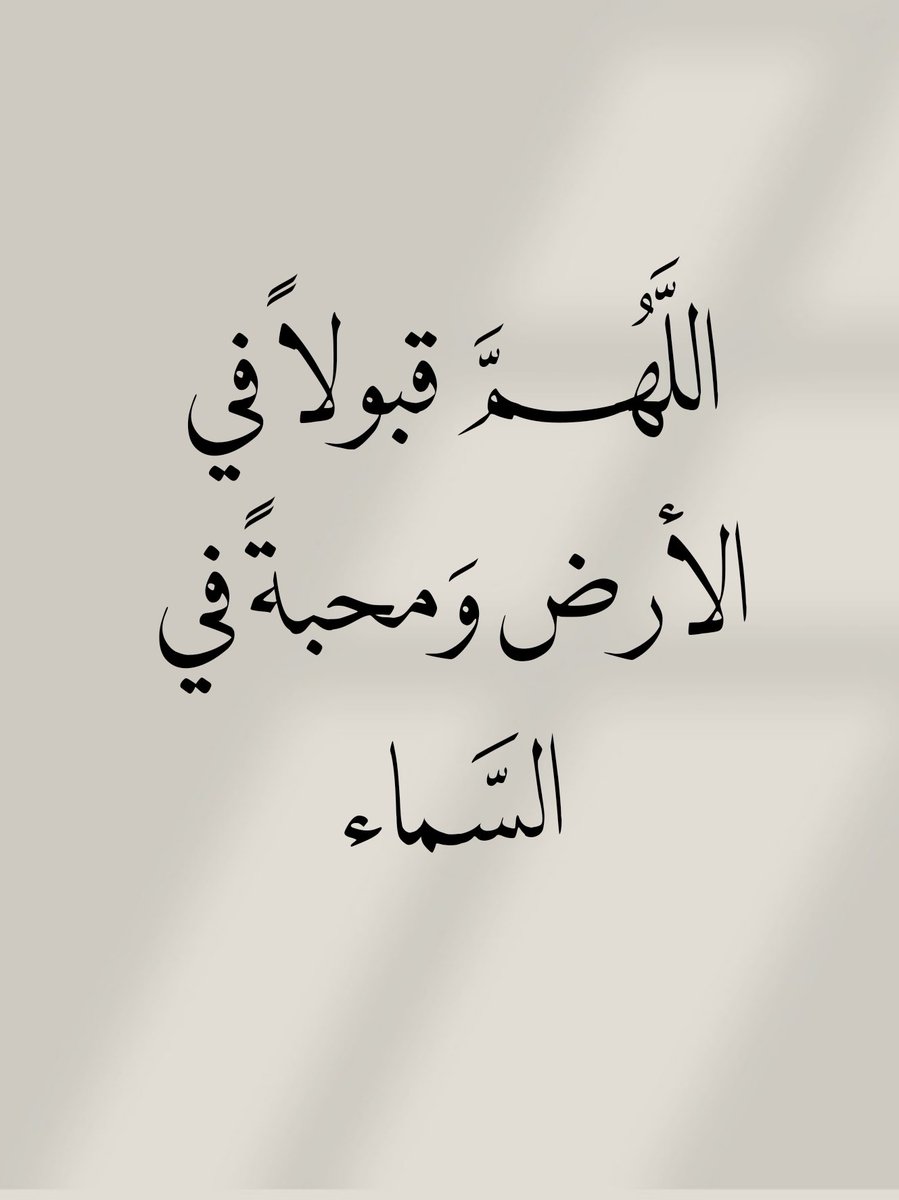 اللَّهُمَّ قبولاً في
الأرض وَمحبةً في
السَّماء